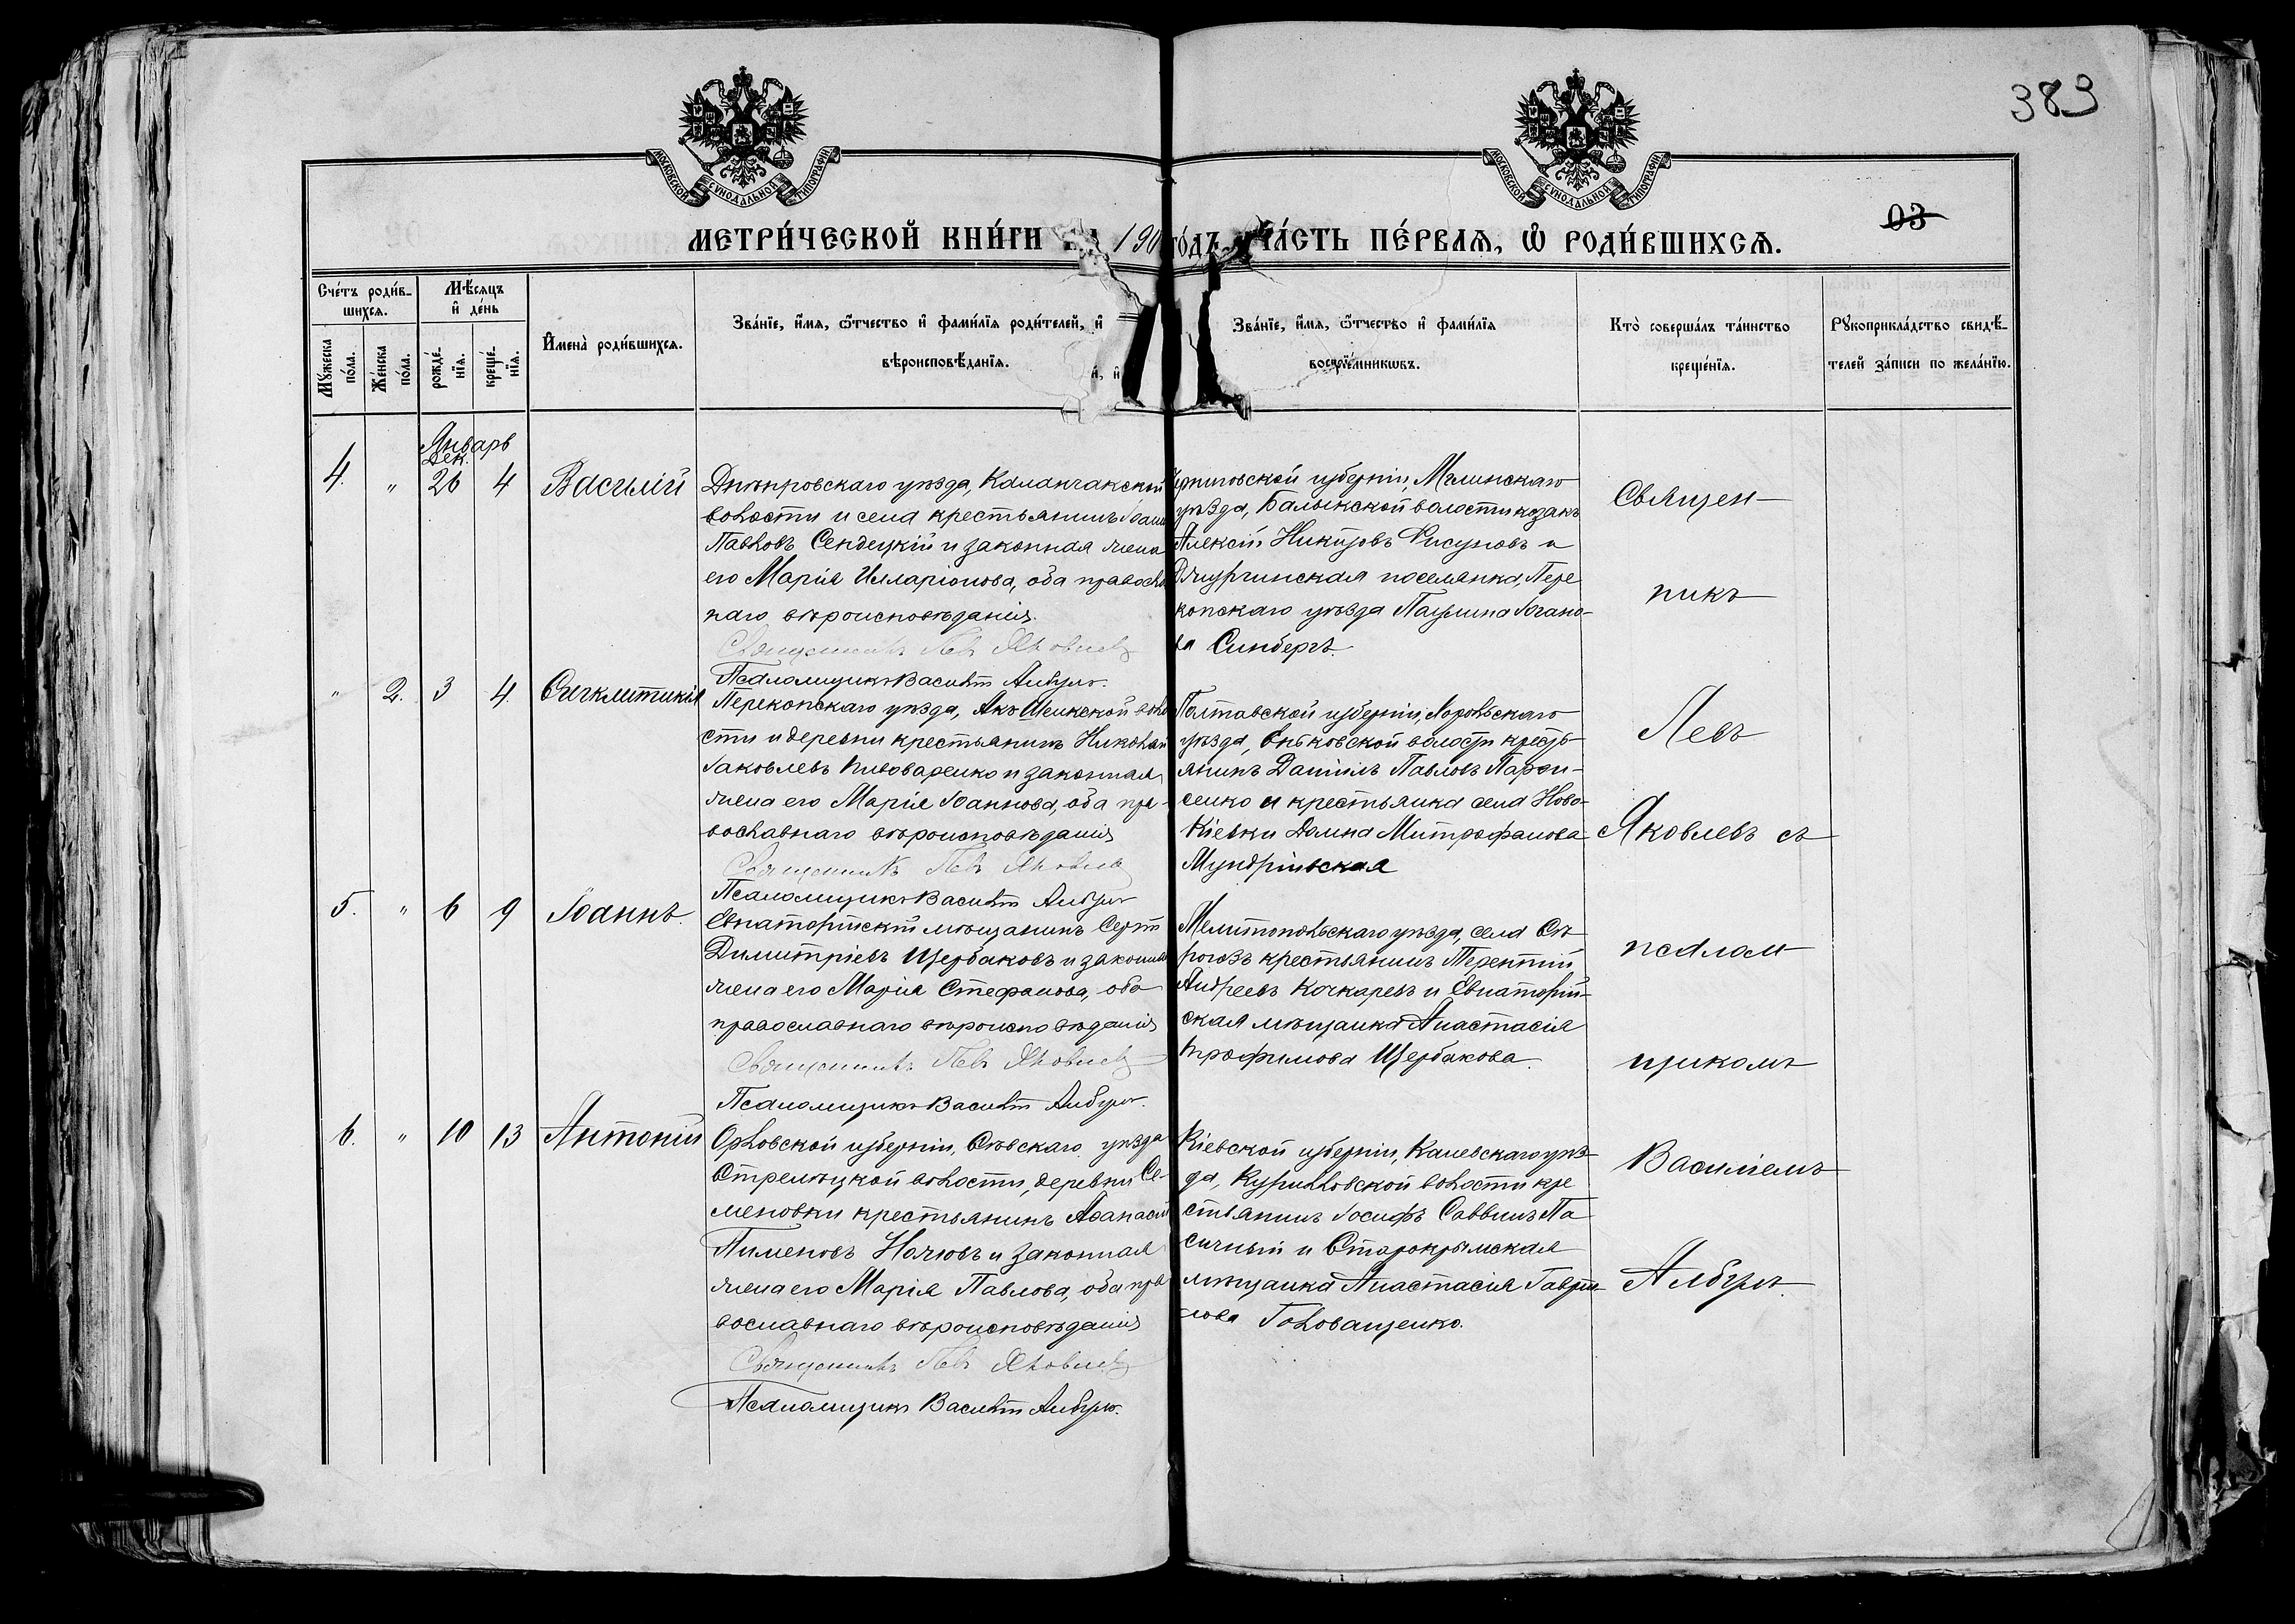 383
МОСКОВСКОЙ СѴНОДАЛЬНОЙ ТИПОГРАФІИ
МОСКОВСКОЙ СѴНОДАЛЬНОЙ ТИПОГРАФІИ
03
МЕТРИ́ЧЕСКОЙ КНИ́ГИ 190 го́дъ, ЧА́СТЬ ПЕ́РВАѦ, Ѡ РОДИ́ВШИХСѦ.
Сче́тъ роди́в-
шихсѧ.
Мѣ́сѧцъ
и҆ де́нь
Мꙋ́жеска
по́ла.
Же́нска
по́ла.
рожде́-
нїѧ.
креще́-
нїѧ.
И҆мена̀ роди́вшихсѧ.
Зва́нїе, и҆́мѧ, ѻ҆́тчество и҆ фами́лїѧ роди́телей, и҆
вѣроисповѣ́данїѧ.
Зва́нїе, и҆́мѧ, ѻ҆́тчество и҆ фами́лїѧ
воспрїе́мникѡвъ.
Кто̀ соверша́лъ та́инство
креще́нїѧ.
Рꙋкоприкла́дство свидѣ́-
телей за́писи по жела́нїю.
Январь
Дек.
4. " 26 4 Василій
Днѣпровскаго уѣзда, Каланчакской
волости и села крестьянинъ Іоаннъ
Павловъ Сендецкій и законная жена
его Марія Илларіонова, оба правосла
наго вѣроисповѣданія.
Священникъ Левъ Яковлевъ
Псаломщикъ Василій Албулъ.
Черниговской губерніи, Мглинскаго
уѣзда, Балыкской волости козакъ
Алексѣй Никитовъ Рисуновъ и
поселянка, Пере
копскаго уѣзда Паулина Іогано-
ва Синбергъ.
" 2. 3 4. Сигклитикія
Перекопскаго уѣзда, Акъ-Шеикской воло
сти и деревни крестьянинъ Николай
Іаковлевъ Пивоваренко и законная
жена его Марія Іоаннова, оба пра-
вославнаго вѣроисповѣданія
Священникъ Левъ Яковлевъ
Псаломщикъ Василій Албулъ
Полтавской губерніи, Хорольскаго
уѣзда, Еньковской волости кресть-
янинъ Даніилъ Павловъ Парфи-
сенко и крестьянка села Ново-
Кіевки Домна Митрофанова
5. " 6 9 Іоаннъ.
Евпаторійскій мѣщанинъ Сергій
Димитріевъ Щербаковъ и законная
жена его Марія Стефанова, оба
православнаго вѣроисповѣданія
Священникъ Левъ Яковлевъ
Псаломщикъ Василій Албулъ.
Мелитопольскаго уѣзда, села Сѣ-
рогозъ крестьянинъ Терентій
Андреевъ Кочкаревъ и Евпаторій-
ская мѣщанка Анастасія
Трофимова Щербакова.
6. " 10 13 Антоній
Орловской губерніи, Сѣвскаго уѣзда
Стрелецкой волости, деревни Се-
меновки крестьянинъ Аѳанасій
Пименовъ Ночювъ и законная
жена его Марія Павлова, оба пра
вославнаго вѣроисповѣданія
Священникъ Левъ Яковлевъ
Псаломщикъ Василій Албулъ.
Кіевской губерніи, Каневскаго уѣз-
да, Куриловской волости кре
стьянинъ Іосифъ Саввинъ Па
сичный и Старокрымская
мѣщанка Анастасія Гаври-
лова Голованщенко.
Священ-
никъ
Левъ
Яковлевъ съ
псалом
щикомъ
Василіемъ
Албулъ.